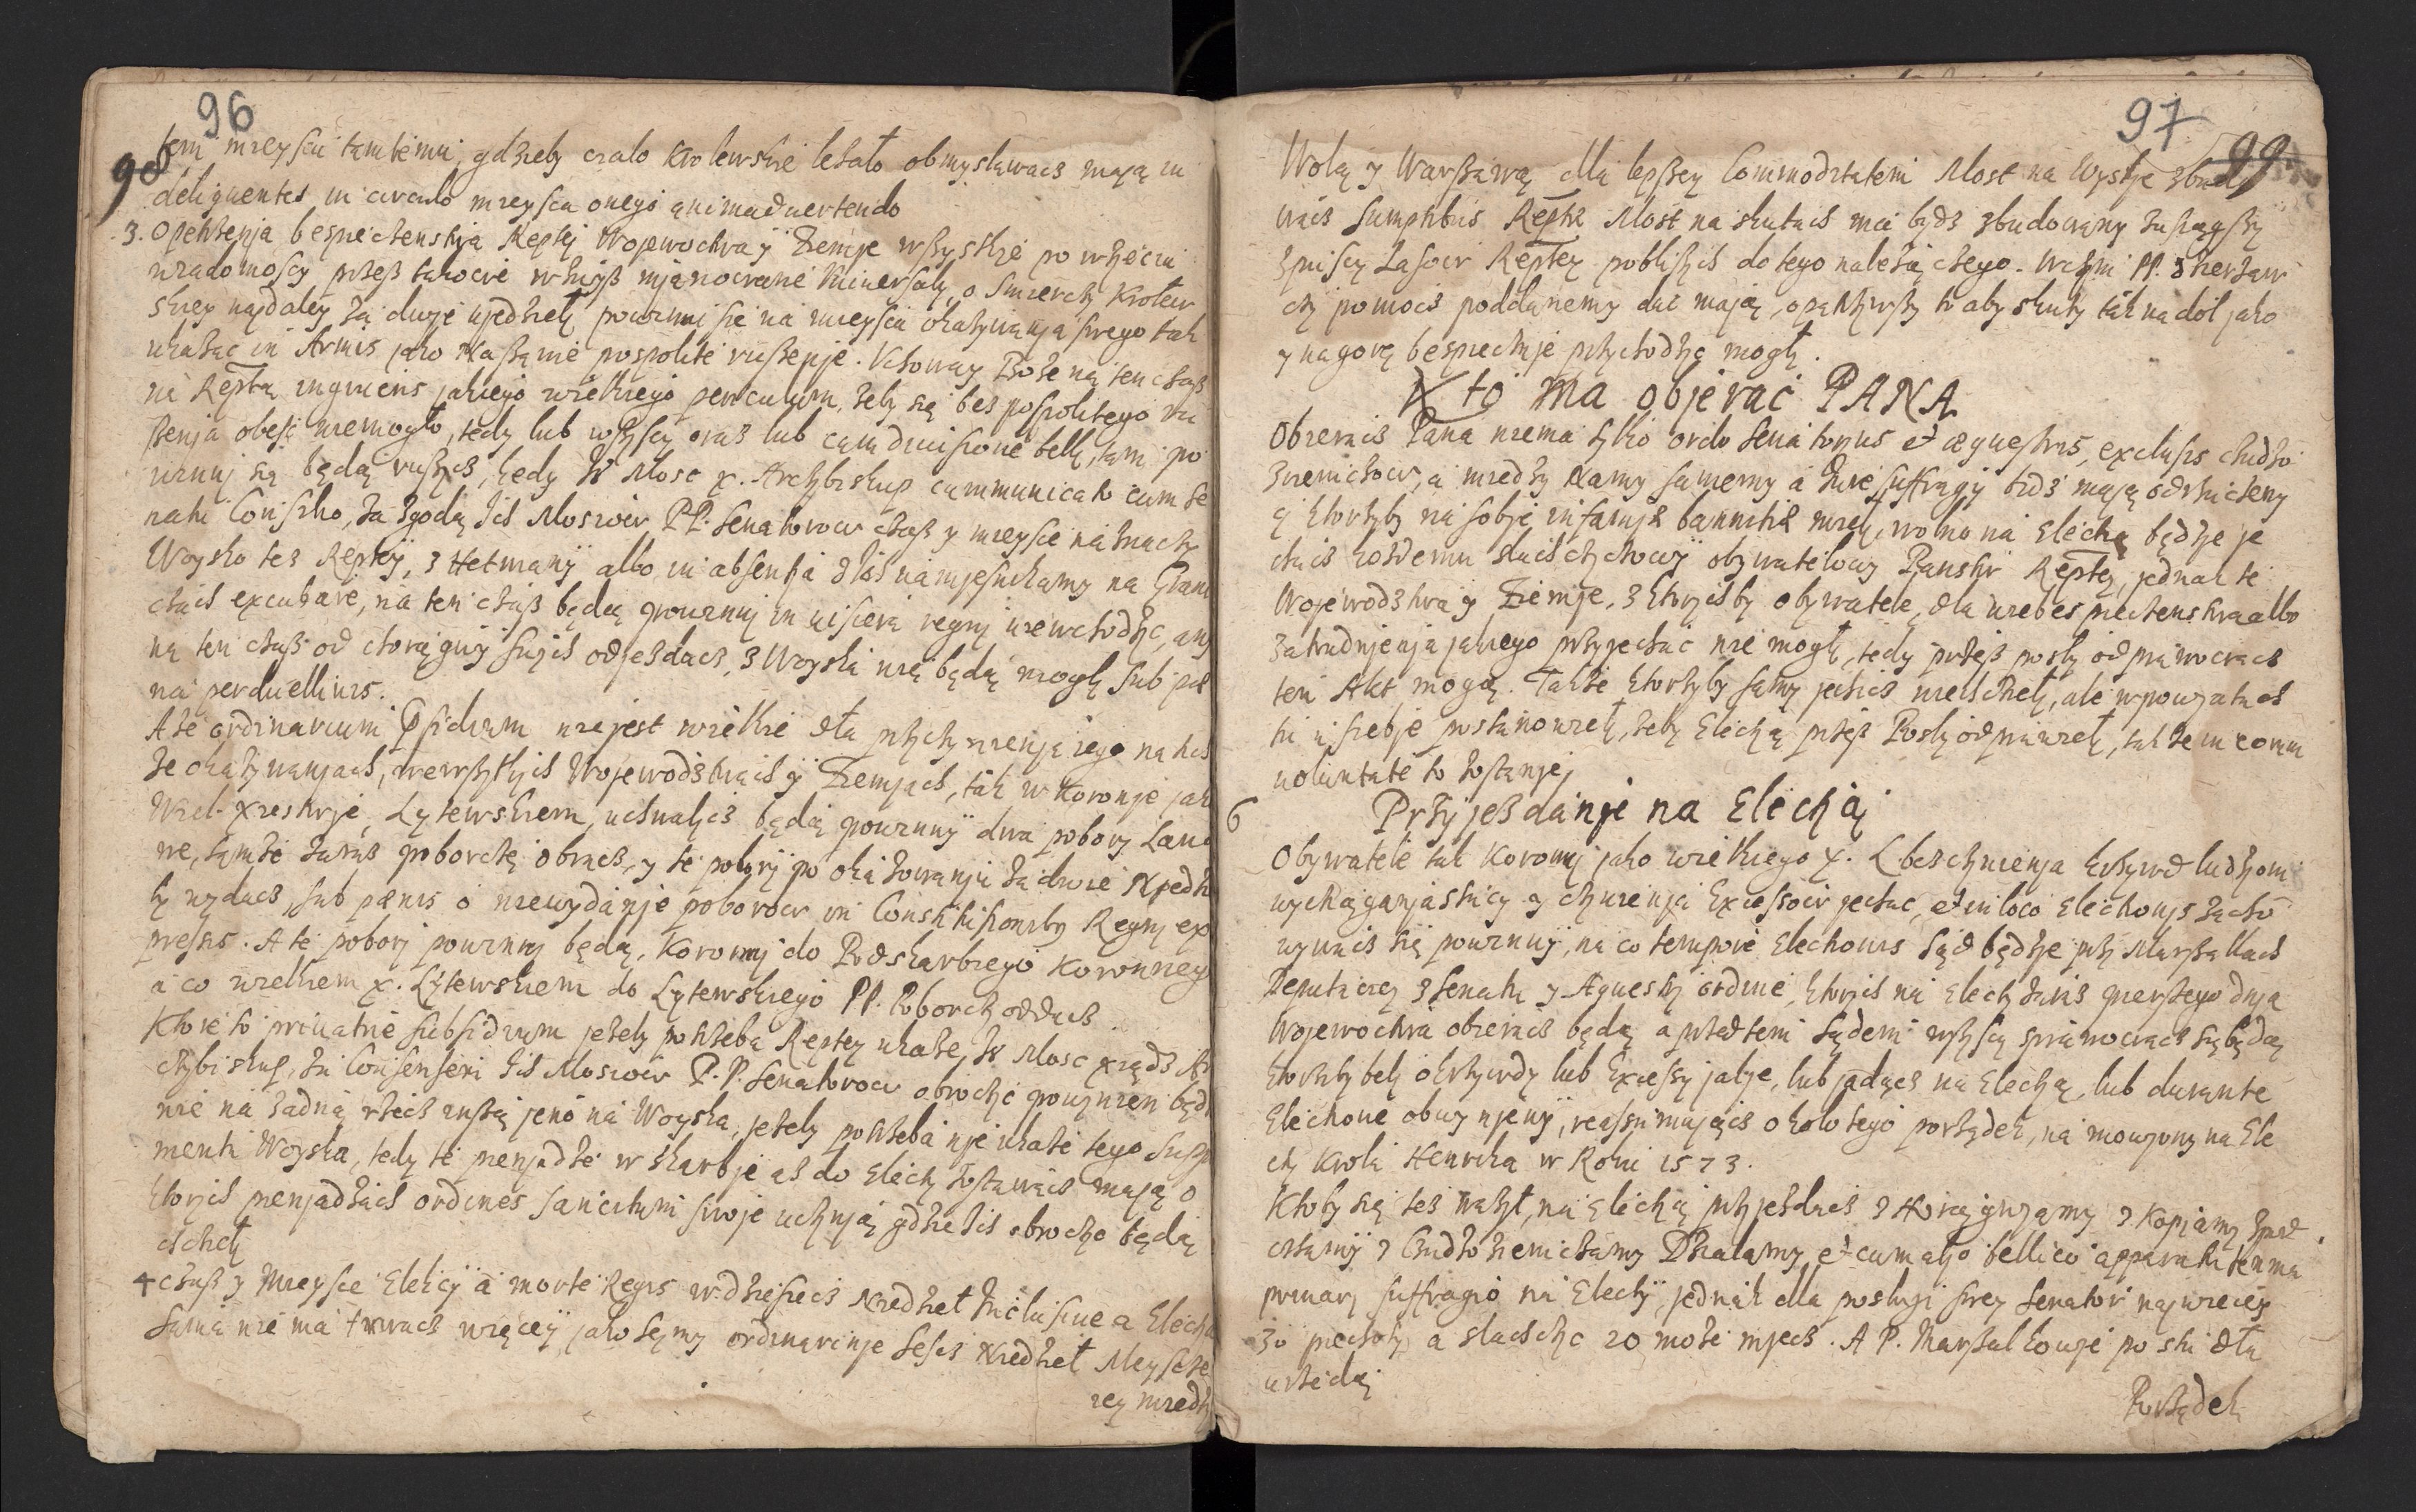 96
90
tem mieyscu tamtemu, gdzieby cialo Krolewskie lezało obmyslawacs mają in
deliquentes in circulo mieysca onego animaduertendo
3. Opatrzenja bespieczenstwa Reptej Wojewodtwa ÿ Ziemje wszystkie po wzięciu
wiadomoscy przesz takowe wyżysz mjanowane Uniuersały, o Smiercy Krolew
skiey najdaley za dwje njedziely powinni się na mieyscu okazywanja swego tak
uKazac in Armis jako Na samé pospolite ruszenje. Vchoway Boze na ten czasz
na Reptą ingruens jakiego wielkiego periculum, zeby się bes pospolitego ru
szenja obeść niemogło, tedy lub wszyscy oras lub cum diuisione belli, tam po
winnj się będą ruszycs, kedy Js Mosc x. Archybiskup communicato cum Se
natu Consilio, za zgodą Ich Mosciow PP. Senatorow czasz y mieysce naznaczy
Woysko tes Reptej, z Hetmanÿ albo in absentia głós namjesnikamy na Grani
czach excubare, na ten czasz będą powinnj in uiscera regnj niewchodzic, any
na ten czasz od chorągwiÿ swyich odjesdacs, z Woyska nie będą mogły sub poe
na perduellionis.
A ze ordinarium Psidium nie jest wielkie dla przyczynienja iego na tich
ze okazywanjach, we wszytkjch Wojewodstwach ÿ Ziemjach, tak w Koronje jak
Wiel. Xiestwje Lytewskiem, uchwalics będą powinnÿ dwa pobory Lano
we, tamze zaras poborcę obracs, y te poborÿ po okazowanju za dwie Niedzie
ly wydacs, sub poenis o niewydanje poborow in Constitutionibus Regnj ex
pressis. A te poborj powinny będą, Koronnj do Podskarbiego Koronnego
a co wielkiem x. Lytewskiem do Lytewskiego PP. Poborcy oddacs
Ktore to priuatne subsidium jezely potrzeba Reptey ukaze, Js Mosc xiądz Ar
chybiskup, za Consensem Ich Mosciow P.P. Senatorow obrocic powinien będ
nie na zadną rzecs inszą jeno na Woyska, jezely potrzeba nje ukaze tego supp
mentu Woyska, tedy te pienjadze w skarbje as do Elecy zostawacs mają o
ktorych pienjadzach ordines sancitum swoje uczynją gdzie Ich obrocic będą
chciely
4 czasz y Mieysce Elekcÿ a morte Regis w dziesiecs Niedziel Inclusiue a Elecja
sama nie ma trwacs więceÿ jako seymy ordinarinje sescs Niedziel Mieyscze
iey miedz
97
99
Wolą y Warszawą dla lepszey Commoditatem Most na Wysle zbudo
wacs sumptibus Repte Most na skutach ma bydz zbudowany zasiągszy
zpiscy Lasow Reptey pobliszich do tego należączego. Wczym PP. dzierzaw
cy pomocs poddanemy dac mają, opatrzywszy to aby skuty tak na dół jako
y nagorę bespiecznje przychodzą mogły.
Kto ma objerac PANA
Obieracs Pana niema tylko ordo Senatorius et aequestris, exclusis cudzo
ziemcow, a miedzy Namy samemy a Iure suffragÿ bidz mają odrzuczeny
cj ktorzyby na sobje infamją bannitią miely, wolno na Elecką będzje je
chacs kozdemu slachczycowÿ obywatelowy Panstw Reptey, jednak te
Wojewodstwa ÿ Ziemje, z ktorych by obywatele, dla niebespieczenstwa albo
zatrudnjenja jakiego przyjechac nie mogły, tedy przesz posły odprawowacs
ten Akt mogą. Takze ktorzyby samy jechacs niechcziely, ale w powjatach
tu u siebje postanowiely, zeby Elecją przesz Posły odprawiely, takze in eorum
uoluntate to zostanjej
6 Przyjesdanje na Elecją
Obywatele tak Koronnj jako wielkiego x. L bes czynienja krzywd ludziom
wyciąganja stacy y czynienja Excessow jechac, et in loco Elechonis zacho
wywacs się powinnÿ, na co tempore Elechonis Sąd będzje przy Marszalkach
Deputaciey z Senatu y Aquestrj ordine, ktorych na Elecy zaras pierszego dnja
Wojewodtwa obieracs będą a przedtem Sądem wszyscy sprawowacs się będą
ktorzyby bely o krzywdy lub Excessy jakje, lub jadącs na Elecją, lub durante
Elechone obwynjenÿ, reassumującs około tego porządek, na mowjony na Ele
cy Krola Henrika w Roku 1573.
Ktoby się tes ważył, na Elecją przyjesdacs z Horągwiamy z Kopiamy Zpod
crtamÿ z Cudzoziemczamy Dzialamy et cum aljo bellico apparatu ten ma
priuarj suffragio na Elecyÿ, jednak dla posługi swey Senator najwiecey
30 piechoty a slachczic 20 moze mjecs. A P. Marszalkowje po stu dla
urzędu
Porządek